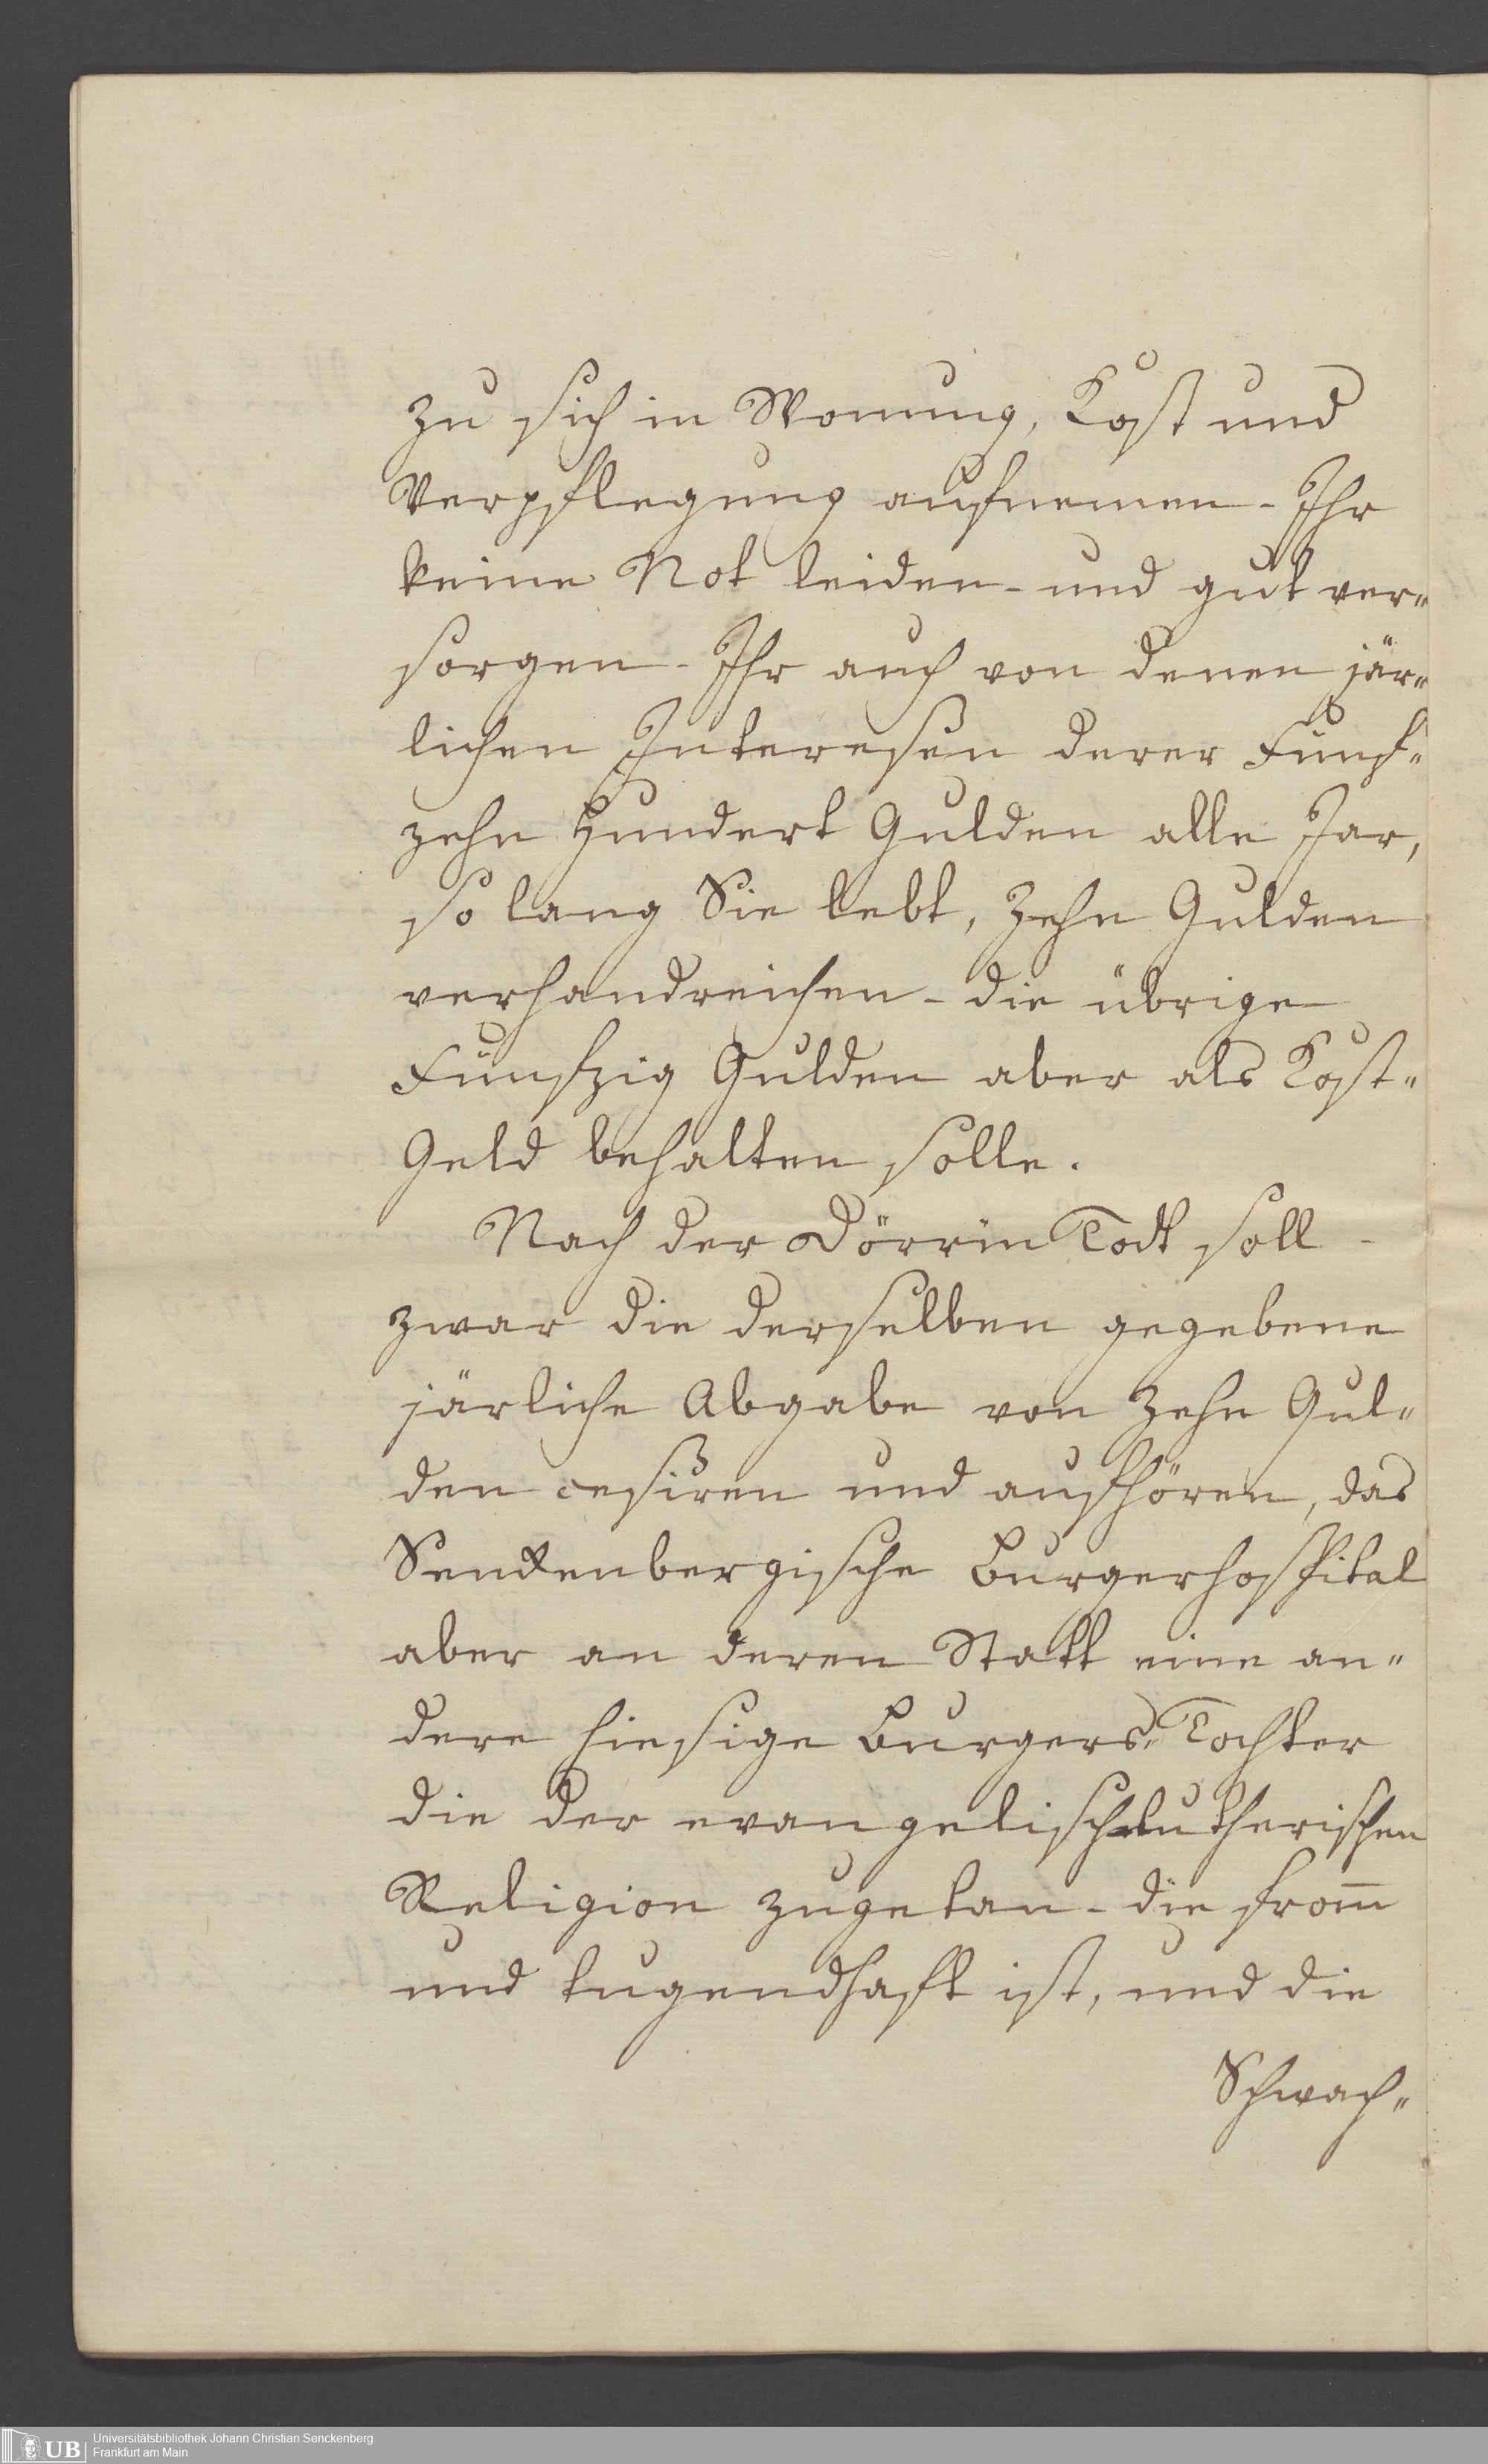 zu sich in Wonung, Kost und
Verpflegung aufnemen - Ihr
keine Not leiden - und gut ver„
sorgen - Ihr auch von denen jär„
lichen Interessen derer Funf„
zehn Hundert Gulden alle Jar,
so lang Sie lebt, Zehn Gulden
verhandreichen - die übrige
Fünfzig Gulden aber als Kost„
Geld behalten solle.
Nach der Dörrin Todt soll -
zwar die derselben gegebene
järliche Abgabe von Zehn Gul„
den cessiren und aufhören, das
Senckenbergische Burgerhospital
aber an deren Statt eine an„
dere hiesige Burgers„Tochter
die der evangelischlutherischen
Religion zugetan - die from̅
und tugendhaft ist, und die
Schwach„
UB
Universitätsbibliothek Johann Christian Senckenberg
Frankfurt am Main